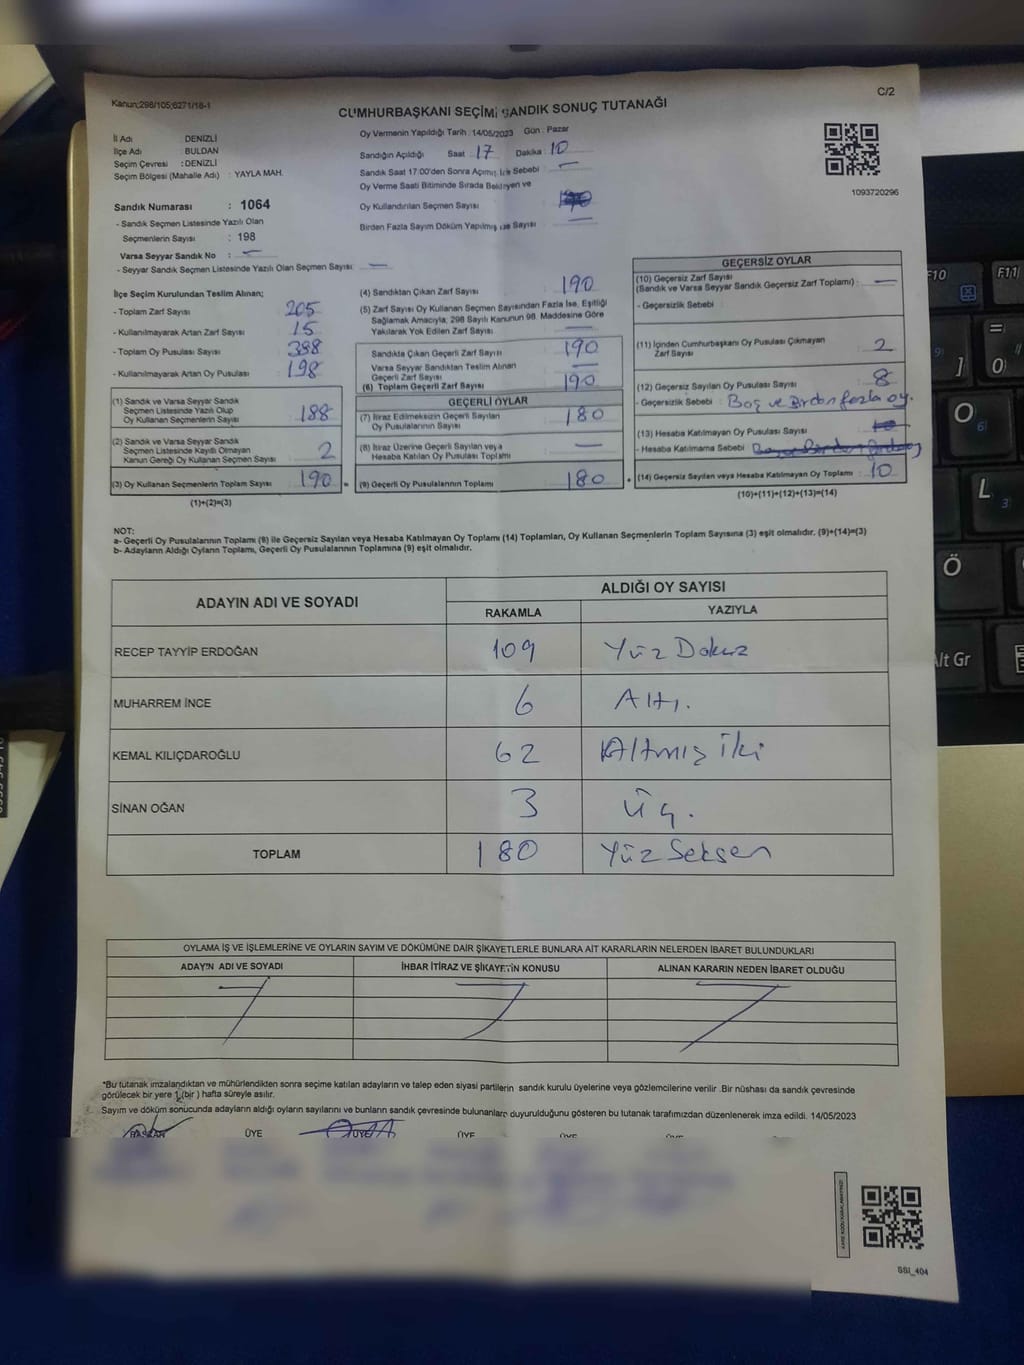 Kanun;298/105;6271/18-1
C/2
CUMHURBAŞKANI SEÇİMİ SANDIK SONUÇ TUTANAĞI
İl Adı DENİZLİ
İlçe Adı BULDAN
Seçim Çevresi : DENİZLİ
Seçim Bölgesi (Mahalle Adı) : YAYLA MAH.
Sandık Numarası : 1064
- Sandık Seçmen Listesinde Yazılı Olan
Seçmenlerin Sayısı : 198
Varsa Seyyar Sandık No : —
- Seyyar Sandık Seçmen Listesinde Yazılı Olan Seçmen Sayısı : —
Oy Vermenin Yapıldığı Tarih : 14/05/2023 Gün : Pazar
Sandığın Açıldığı Saat 17 Dakika : 10
Sandık Saat 17:00'den Sonra Açılmış ise Sebebi : —
Oy Verme Saati Bitiminde Sırada Bekleyen ve
Oy Kullandırılan Seçmen Sayısı
Birden Fazla Sayım Döküm Yapılmış ise Sayısı —
1093720296
İlçe Seçim Kurulundan Teslim Alınan;
- Toplam Zarf Sayısı 205
- Kullanılmayarak Artan Zarf Sayısı 15
- Toplam Oy Pusulası Sayısı 388
- Kullanılmayarak Artan Oy Pusulası 198
(1) Sandık ve Varsa Seyyar Sandık
Seçmen Listesinde Yazılı Olup
Oy Kullanan Seçmenlerin Sayısı 188
(2) Sandık ve Varsa Seyyar Sandık
Seçmen Listesinde Kaydı Olmayan
Kanun Gereği Oy Kullanan Seçmen Sayısı 2
(3) Oy Kullanan Seçmenlerin Toplam Sayısı 190 =
(1)+(2)=(3)
(4) Sandıktan Çıkan Zarf Sayısı 190
(5) Zarf Sayısı Oy Kullanan Seçmen Sayısından Fazla İse, Eşitliği
Sağlamak Amacıyla; 298 Sayılı Kanunun 98. Maddesine Göre
Yakılarak Yok Edilen Zarf Sayısı —
Sandıkta Çıkan Geçerli Zarf Sayısı 190
Varsa Seyyar Sandıktan Teslim Alınan
Geçerli Zarf Sayısı
(6) Toplam Geçerli Zarf Sayısı 190
GEÇERLİ OYLAR
(7) İtiraz Edilmeksizin Geçerli Sayılan
Oy Pusulalarının Sayısı 180
(8) İtiraz Üzerine Geçerli Sayılan veya
Hesaba Katılan Oy Pusulası Toplamı —
(9) Geçerli Oy Pusulalarının Toplamı 180 +
GEÇERSİZ OYLAR
(10) Geçersiz Zarf Sayısı
(Sandık ve Varsa Seyyar Sandık Geçersiz Zarf Toplamı) : —
- Geçersizlik Sebebi :
(11) İçinden Cumhurbaşkanı Oy Pusulası Çıkmayan
Zarf Sayısı 2
(12) Geçersiz Sayılan Oy Pusulası Sayısı : 8
- Geçersizlik Sebebi : Boş ve Birden fazla oy.
(13) Hesaba Katılmayan Oy Pusulası Sayısı :
- Hesaba Katılmama Sebebi :
(14) Geçersiz Sayılan veya Hesaba Katılmayan Oy Toplamı : 10
(10)+(11)+(12)+(13)=(14)
NOT:
a- Geçerli Oy Pusulalarının Toplamı (9) ile Geçersiz Sayılan veya Hesaba Katılmayan Oy Toplamı (14) Toplamları, Oy Kullanan Seçmenlerin Toplam Sayısına (3) eşit olmalıdır. (9)+(14)=(3)
b- Adayların Aldığı Oyların Toplamı, Geçerli Oy Pusulalarının Toplamına (9) eşit olmalıdır.
ADAYIN ADI VE SOYADI
ALDIĞI OY SAYISI
RAKAMLA YAZIYLA
RECEP TAYYİP ERDOĞAN 109 Yüz Dokuz
MUHARREM İNCE 6 Altı.
KEMAL KILIÇDAROĞLU 62 Altmış iki
SİNAN OĞAN 3 Üç.
TOPLAM 180 Yüz Seksen
OYLAMA İŞ VE İŞLEMLERİNE VE OYLARIN SAYIM VE DÖKÜMÜNE DAİR ŞİKAYETLERLE BUNLARA AİT KARARLARIN NELERDEN İBARET BULUNDUKLARI
ADAYIN ADI VE SOYADI İHBAR İTİRAZ VE ŞİKAYETİN KONUSU ALINAN KARARIN NEDEN İBARET OLDUĞU
*Bu tutanak imzalandıktan ve mühürlendikten sonra seçime katılan adayların ve talep eden siyasi partilerin sandık kurulu üyelerine veya gözlemcilerine verilir .Bir nüshası da sandık çevresinde
görülecek bir yere 1 (bir ) hafta süreyle asılır.
Sayım ve döküm sonucunda adayların aldığı oyların sayılarını ve bunların sandık çevresinde bulunanlara duyurulduğunu gösteren bu tutanak tarafımızdan düzenlenerek imza edildi. 14/05/2023
BAŞKAN ÜYE ÜYE ÜYE ÜYE ÜYE
SSI_404
F10
F11
Alt Gr
Ö
O
L